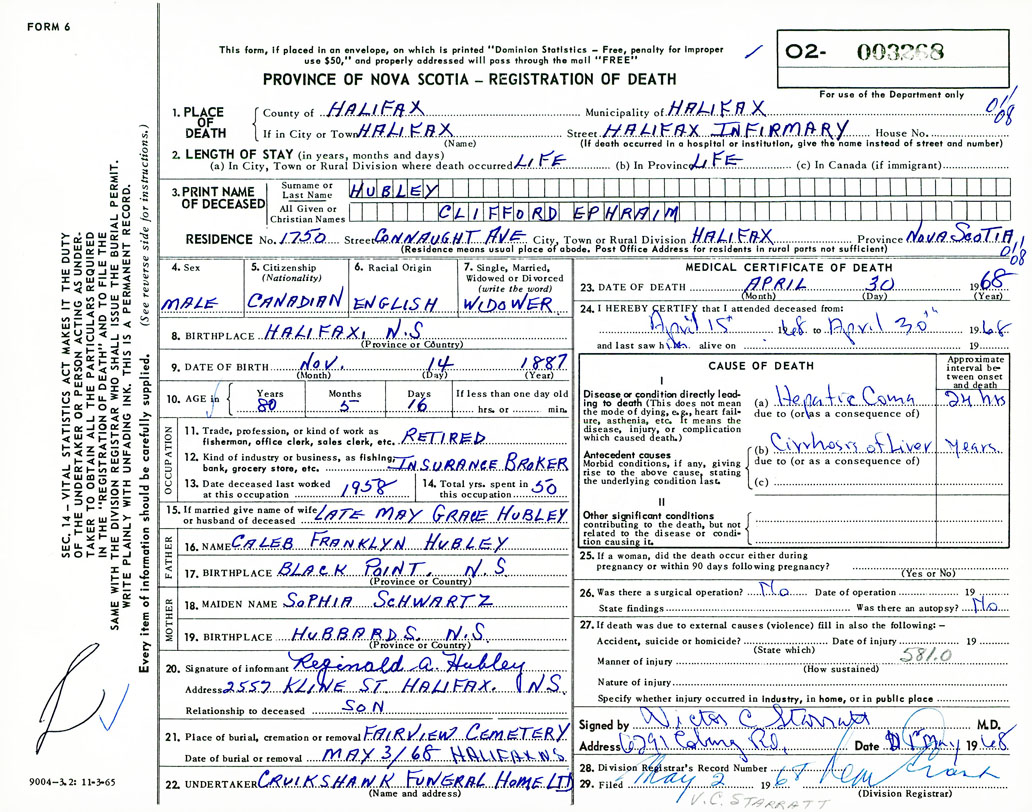 FORM 6
This form, if placed in an envelope, on which is printed "Dominion Statistics – Free, penalty for improper
use $50," and properly addressed will pass through the mail "FREE"
O2- 003268
PROVINCE OF NOVA SCOTIA – REGISTRATION OF DEATH
For use of the Department only
011
08
1. PLACE OF DEATH
County of HALIFAX Municipality of HALIFAX
If in City or Town HALIFAX Street HALIFAX INFIRMARY House No.
(Name) (If death occurred in a hospital or institution, give the name instead of street and number)
2. LENGTH OF STAY (in years, months and days)
(a) In City, Town or Rural Division where death occurred LIFE (b) In Province LIFE (c) In Canada (if immigrant)
3. PRINT NAME OF DECEASED
Surname or Last Name HUBLEY
All Given or Christian Names CLIFFORD EPHRAIM
RESIDENCE No. 1750 Street CONNAUGHT AVE City, Town or Rural Division HALIFAX Province NOVA SCOTIA
(Residence means usual place of abode. Post Office Address for residents in rural parts not sufficient)
011
08
4. Sex MALE
5. Citizenship (Nationality) CANADIAN
6. Racial Origin ENGLISH
7. Single, Married, Widowed or Divorced (write the word) WIDOWER
8. BIRTHPLACE HALIFAX, N.S
(Province or Country)
9. DATE OF BIRTH NOV. 14 1887
(Month) (Day) (Year)
10. AGE in Years 80 Months 5 Days 16 If less than one day old hrs. or min.
OCCUPATION
11. Trade, profession, or kind of work as
fisherman, office clerk, sales clerk, etc. RETIRED
12. Kind of industry or business, as fishing,
bank, grocery store, etc. INSURANCE BROKER
13. Date deceased last worked at this occupation 1958
14. Total yrs. spent in this occupation 50
15. If married give name of wife
or husband of deceased LATE MAY GRACE HUBLEY
FATHER
16. NAME CALEB FRANKLYN HUBLEY
17. BIRTHPLACE BLACK POINT. N.S
(Province or Country)
MOTHER
18. MAIDEN NAME SOPHIA SCHWARTZ
19. BIRTHPLACE HUBBARDS. N.S
(Province or Country)
20. Signature of informant Reginald A. Hubley
Address 2557 KLINE ST HALIFAX. NS.
Relationship to deceased SON
21. Place of burial, cremation or removal FAIRVIEW CEMETERY
Date of burial or removal MAY 3/68 HALIFAX N.S.
22. UNDERTAKER CRUIKSHANK FUNERAL HOME LTD
(Name and address)
MEDICAL CERTIFICATE OF DEATH
23. DATE OF DEATH APRIL 30 1968
(Month) (Day) (Year)
24. I HEREBY CERTIFY that I attended deceased from:
April 15th 1968 to April 30th 1968
and last saw him alive on 19
CAUSE OF DEATH
Approximate interval between onset and death
I
Disease or condition directly leading to death (This does not mean the mode of dying, e.g., heart failure, asthenia, etc. It means the disease, injury, or complication which caused death.)
(a) Hepatic Coma 24 hrs
due to (or as a consequence of)
Antecedent causes
Morbid conditions, if any, giving rise to the above cause, stating the underlying condition last.
(b) Cirrhosis of Liver years.
due to (or as a consequence of)
(c)
II
Other significant conditions
contributing to the death, but not
related to the disease or condition causing it.
25. If a woman, did the death occur either during
pregnancy or within 90 days following pregnancy?
(Yes or No)
26. Was there a surgical operation? No Date of operation 19
State findings Was there an autopsy? No
27. If death was due to external causes (violence) fill in also the following: –
Accident, suicide or homicide? Date of injury 19
(State which) 581.0
Manner of injury
(How sustained)
Nature of injury
Specify whether injury occurred in industry, in home, or in public place
Signed by Victor C Starratt M.D.
Address 6291 Rd, Date May 1968
28. Division Registrar's Record Number
29. Filed May 2 1968
(Division Registrar)
V.C. STARRATT
SEC. 14 – VITAL STATISTICS ACT MAKES IT THE DUTY
OF THE UNDERTAKER OR PERSON ACTING AS UNDER-
TAKER TO OBTAIN ALL THE PARTICULARS REQUIRED
IN THE "REGISTRATION OF DEATH" AND TO FILE THE
SAME WITH THE DIVISION REGISTRAR WHO SHALL ISSUE THE BURIAL PERMIT.
WRITE PLAINLY WITH UNFADING INK. THIS IS A PERMANENT RECORD.
Every item of information should be carefully supplied. (See reverse side for instructions.)
9004–3.2: 11-3-65